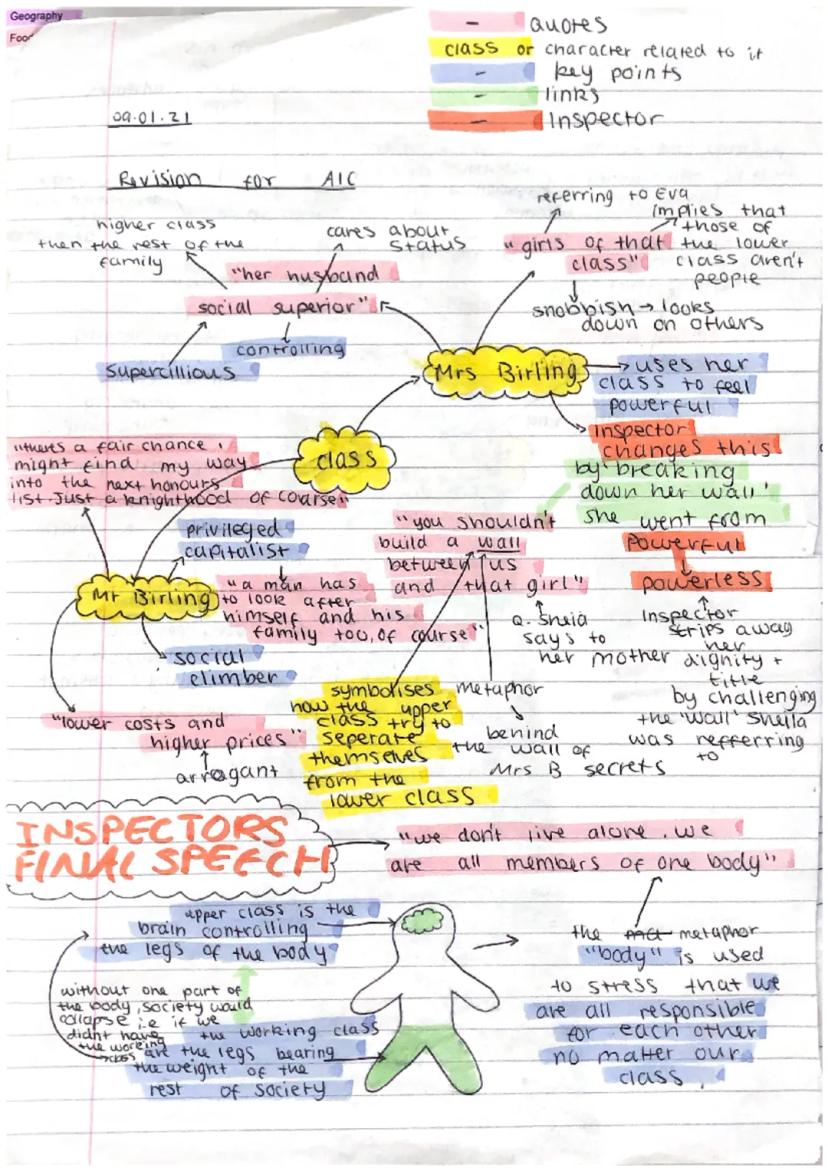 Geography
Food
- quotes
class or character related to it
- key points
- links
- Inspector
09.01.21
Revision for AIC
higher class
then the rest of the
family
cares about
status
"her husband
social superior"
Supercillious
controlling
referring to Eva
implies that
those of
the lower
class aren't
people
"girls of that
class"
snobbish → looks
down on others
Mrs Birling
uses her
class to feel
powerful
Inspector
changes this
by 'breaking
down her wall'
she went from
Powerful
powerless
Inspector
strips away
her
dignity +
title
by challenging
the 'wall' Sheila
was refferring
to
class
"theres a fair chance I
might find my way
into the next honours
list. Just a knighthood of course"
privileged
capitalist
Mr Birling
"a man has
to look after
himself and his
family too, of course"
social
climber
"lower costs and
higher prices"
arragant
"you shouldn't
build a wall
between us
and that girl"
Q. Sheia
says to
her mother
symbolises
how the upper
class try to
seperate
themselves
from the
lower class
metaphor
behind
the wall of
Mrs B secrets
INSPECTORS
FINAL SPEECH
"we don't live alone. we
are all members of one body"
upper class is the
brain controlling
the legs of the body
without one part of
the body, society would
collapse i.e if we
didnt have
the working
class
the working class
are the legs bearing
the weight of the
rest of society
the metaphor
"body" is used
to stress that we
are all responsible
for each other
no matter our
class.